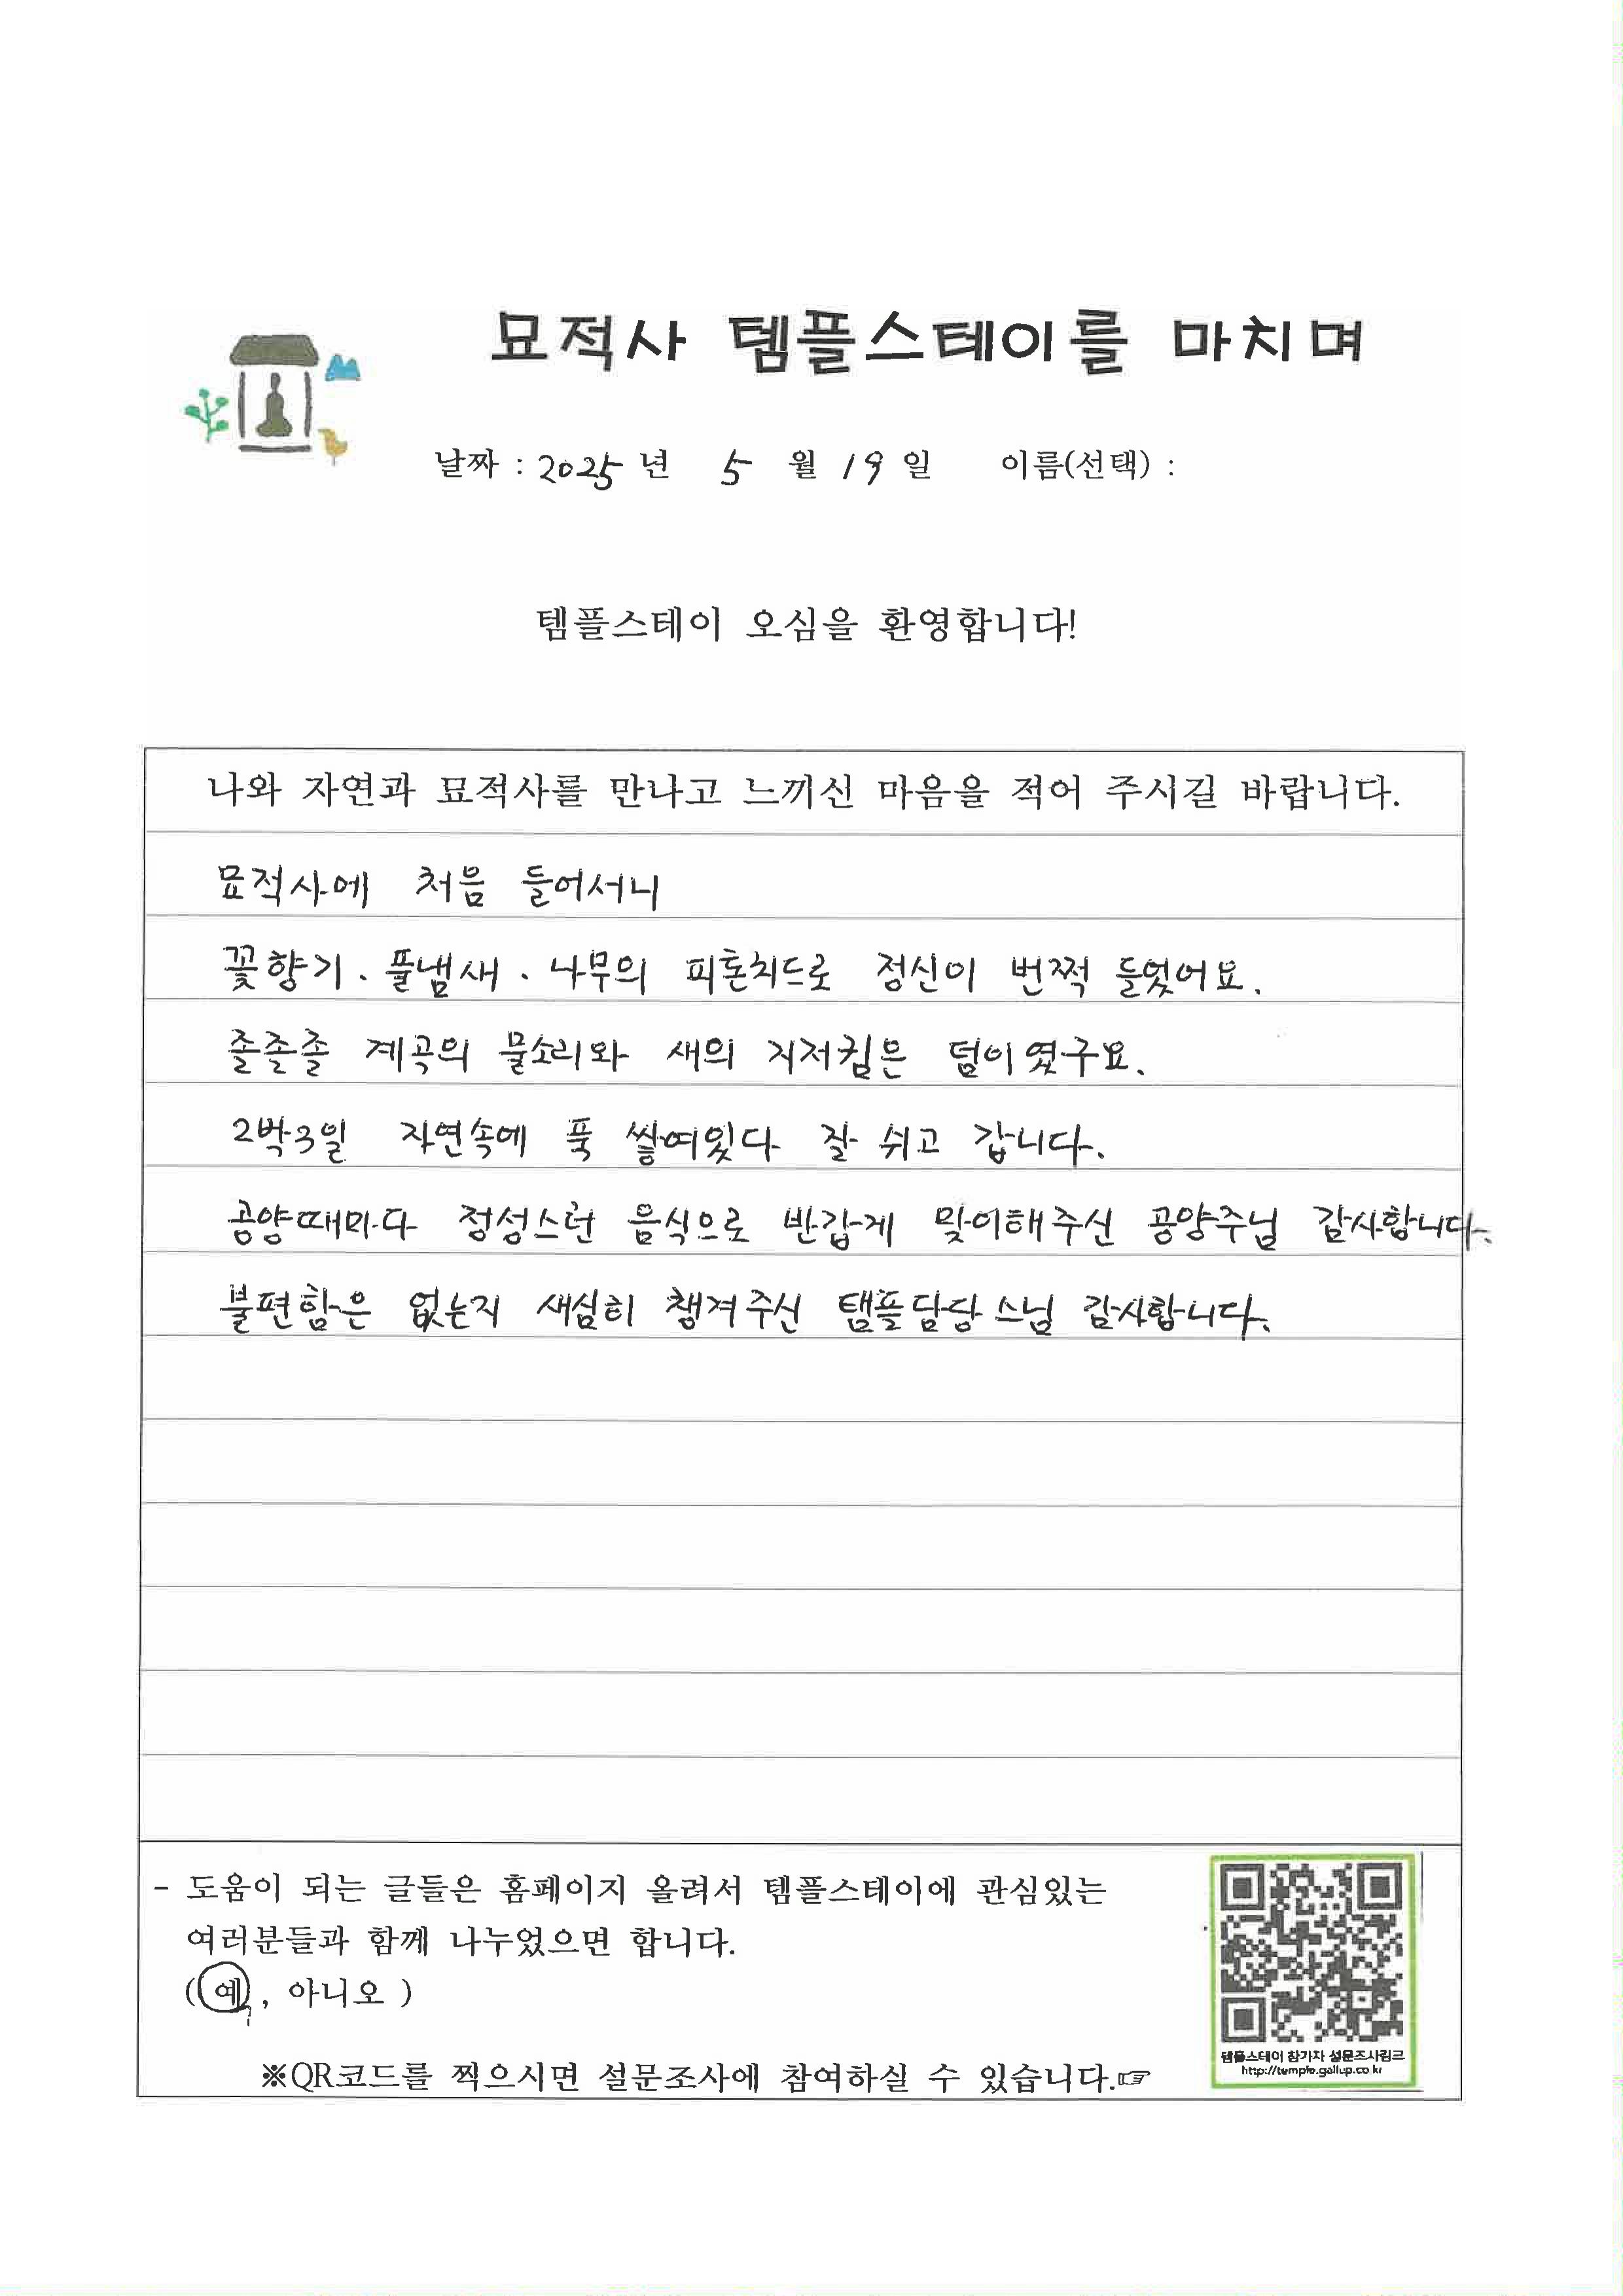 묘적사 템플스테이를 마치며
날짜 : 2025 년 5 월 19 일 이름(선택) :
템플스테이 오심을 환영합니다!
나와 자연과 묘적사를 만나고 느끼신 마음을 적어 주시길 바랍니다.
묘적사에 처음 들어서니
꽃향기. 풀냄새. 나무의 피톤치드로 정신이 번쩍 들었어요.
졸졸졸 계곡의 물소리와 새의 지저귐은 덤이였구요.
2박3일 자연속에 푹 쌓여있다 잘 쉬고 갑니다.
공양때마다 정성스런 음식으로 반갑게 맞이해주신 공양주님 감사합니다.
불편함은 없는지 새심히 챙겨주신 탬플담당 스님 감사합니다.
- 도움이 되는 글들은 홈페이지 올려서 템플스테이에 관심있는
여러분들과 함께 나누었으면 합니다.
( 예 , 아니오 )
※QR코드를 찍으시면 설문조사에 참여하실 수 있습니다.☞
템플스테이 참가자 설문조사링크
http://temple.gallup.co.kr